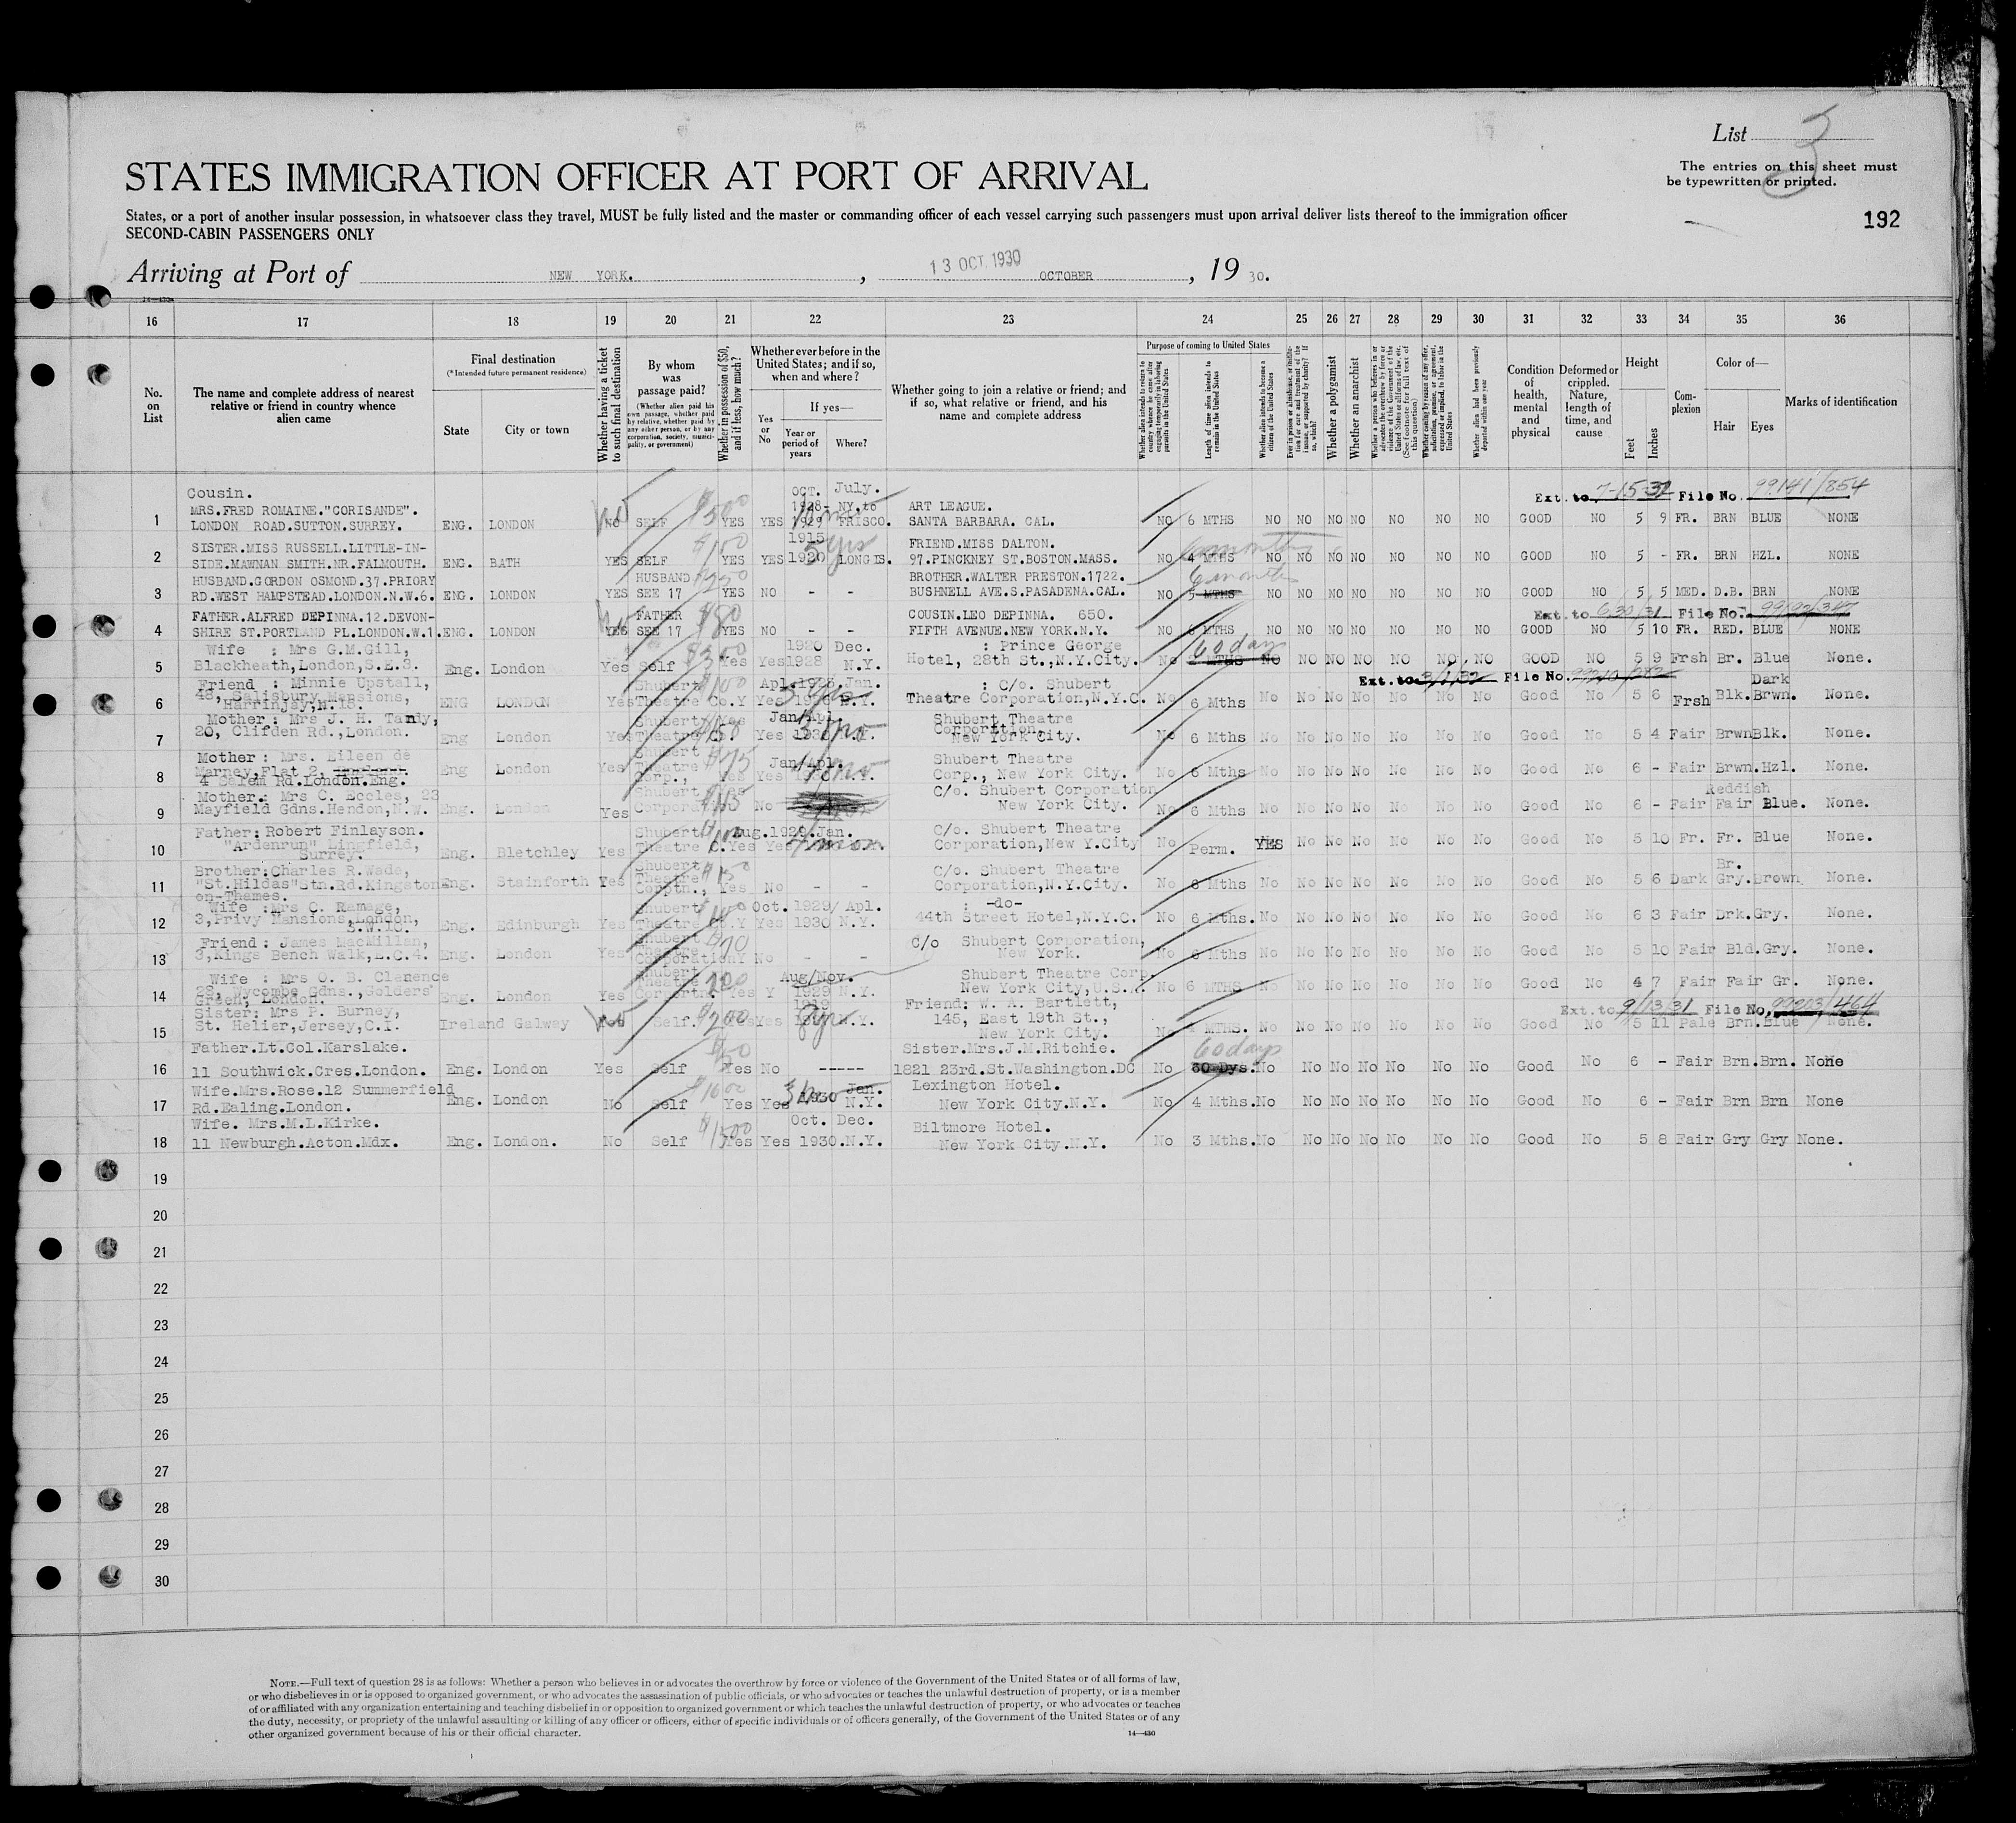 List 3
The entries on this sheet must
be typewritten or printed.
STATES IMMIGRATION OFFICER AT PORT OF ARRIVAL
States, or a port of another insular possession, in whatsoever class they travel, MUST be fully listed and the master or commanding officer of each vessel carrying such passengers must upon arrival deliver lists thereof to the immigration officer
SECOND-CABIN PASSENGERS ONLY
192
Arriving at Port of NEW YORK. , 13 OCT. 1930 OCTOBER , 19 30.
16 17 18 19 20 21 22 23 24 25 26 27 28 29 30 31 32 33 34 35 36
No. on List
The name and complete address of nearest relative or friend in country whence alien came
Final destination
(*Intended future permanent residence)
State City or town
Whether having a ticket to such final destination
By whom was passage paid?
(Whether alien paid his own passage, whether paid by relative, whether paid by any other person, or by any corporation, society, municipality, or government)
Whether in possession of $50, and if less, how much?
Whether ever before in the United States; and if so, when and where?
Yes or No
If yes—
Year or period of years Where?
Whether going to join a relative or friend; and if so, what relative or friend, and his name and complete address
Purpose of coming to United States
Length of time alien intends to remain in the United States
Whether alien intends to become a citizen of the United States
Whether a polygamist
Whether an anarchist
Condition of health, mental and physical
Deformed or crippled. Nature, length of time, and cause
Height
Feet Inches
Complexion
Color of—
Hair Eyes
Marks of identification
Cousin. OCT. July. Ext. to 7-15-32 File No. 99141/854
MRS.FRED ROMAINE."CORISANDE". 1928- NY.to ART LEAGUE.
1 LONDON ROAD.SUTTON.SURREY. ENG. LONDON NO SELF $500 YES YES 1929 FRISCO. SANTA BARBARA. CAL. NO 6 MTHS NO NO NO NO NO NO NO GOOD NO 5 9 FR. BRN BLUE NONE
SISTER.MISS RUSSELL.LITTLE-IN- 1915 FRIEND.MISS DALTON.
2 SIDE.MAWNAN SMITH.NR.FALMOUTH. ENG. BATH YES SELF YES YES 1920 LONG IS. 97.PINCKNEY ST.BOSTON.MASS. NO 4 MTHS NO NO NO NO NO NO NO GOOD NO 5 - FR. BRN HZL. NONE
HUSBAND.GORDON OSMOND.37.PRIORY HUSBAND BROTHER.WALTER PRESTON.1722. 6 months
3 RD.WEST HAMPSTEAD.LONDON.N.W.6. ENG. LONDON YES SEE 17 YES NO - - BUSHNELL AVE.S.PASADENA.CAL. NO 5 MTHS NO NO NO NO NO NO NO GOOD NO 5 5 MED. D.B. BRN NONE
FATHER.ALFRED DEPINNA.12.DEVON- FATHER $80 COUSIN.LEO DEPINNA. 650. Ext. to 6/30/31 File No.
4 SHIRE ST.PORTLAND PL.LONDON.W.1. ENG. LONDON YES SEE 17 YES NO - - FIFTH AVENUE.NEW YORK.N.Y. NO 6 MTHS NO NO NO NO NO NO NO GOOD NO 5 10 FR. RED. BLUE NONE
Wife : Mrs G.M.Gill, 1920 Dec. : Prince George 60 days
5 Blackheath,London,S.E.3. Eng. London Yes Self $300 Yes Yes 1928 N.Y. Hotel, 28th St.,N.Y.City. No MTHS NO NO NO NO NO NO NO GOOD NO 5 9 Frsh Br. Blue None.
Friend : Minnie Upstall, Shubert $100 Apl.1925.Jan. : C/o. Shubert Ext. to 3/1/32 File No. Dark
6 48, Salisbury Mansions, Harrinjay,N.15. ENG LONDON Yes Theatre Co.Y Yes N.Y. Theatre Corporation,N.Y.C. No 6 Mths No No No No No No No Good No 5 6 Frsh Blk. Brwn. None.
Mother : Mrs J. H. Tandy, Shubert Yes Jan/Apl. Shubert Theatre Corporation,
7 20, Clifden Rd.,London. Eng London Yes Yes 1930 New York City. No 6 Mths No No No No No No No Good No 5 4 Fair Brwn Blk. None.
Mother : Mrs. Eileen de Shubert $75 Jan/Apl. Shubert Theatre
8 Marney,Flat 2, 4 Salem Rd.London.Eng. Eng London Yes Theatre Corp., Yes Yes Corp., New York City. No 6 Mths No No No No No No No Good No 6 - Fair Brwn. Hzl. None.
Mother: Mrs C. Eccles, 23 Shubert Yes C/o. Shubert Corporation Reddish
9 Mayfield Gdns.Hendon,N.W. Eng. London Yes No New York City. No 6 Mths No No No No No No No Good No 6 - Fair Fair Blue. None.
Father: Robert Finlayson. Shubert Aug.1929.Jan. C/o. Shubert Theatre
10 "Ardenrun" Lingfield, Surrey. Eng. Bletchley Yes Theatre C. Yes Yes Corporation,New Y.City No Perm. YES No No No No No No Good No 5 10 Fr. Fr. Blue None.
Brother:Charles R.Wade, Shubert $150 C/o. Shubert Theatre Br.
11 "St.Hildas"Stn.Rd.Kingston on-Thames. Eng. Stainforth Yes Theatre Corptn., Yes No - - Corporation,N.Y.City. No 6 Mths No No No No No No No Good No 5 6 Dark Gry. Brown None.
Wife :Mrs C. Ramage, Shubert Oct. 1929/ Apl. : -do-
12 3,Privy Mansions,London, S.W.10. Eng. Edinburgh Yes Theatre Co.Y Yes 1930 N.Y. 44th Street Hotel,N.Y.C. No 6 Mths. No No No No No No No Good No 6 3 Fair Drk. Gry. None.
Friend : James MacMillan, Shubert $70 C/o Shubert Corporation,
13 3,Kings Bench Walk,E.C.4. Eng. London Yes Theatre Corporation Y No - - New York. No 6 Mths No No No No No No No Good No 5 10 Fair Bld. Gry. None.
Wife : Mrs O. B. Clarence Shubert Aug/Nov. Shubert Theatre Corp.
14 28, Wycombe Gdns.,Golders Green, London. Eng. London Yes Theatre Corportn. Yes Y 1929 N.Y. New York City,U.S.A. No 6 MTHS No No No No No No No Good No 4 7 Fair Fair Gr. None.
Sister: Mrs P. Burney, 1919 Friend: W. A. Bartlett, Ext. to 9/13/31 File No. 99203/464
15 St. Helier,Jersey,C.I. Ireland Galway Self. $200 Yes Yes N.Y. 145, East 19th St., New York City. No MTHS. No No No No No No No Good No 5 11 Pale Brn. Blue None.
Father.Lt.Col.Karslake. $50 Sister.Mrs.J.M.Ritchie. 60 days
16 11 Southwick.Cres.London. Eng. London Yes Self Yes No ----- 1821 23rd.St.Washington.DC No 30 Dys. No No No No No No No Good No 6 - Fair Brn. Brn. None
Wife.Mrs.Rose.12 Summerfield $1000 Jan. Lexington Hotel.
17 Rd.Ealing.London. Eng. London No Self Yes Yes 1930 N.Y. New York City.N.Y. No 4 Mths. No No No No No No No Good No 6 - Fair Brn Brn None
Wife. Mrs.M.L.Kirke. $1500 Oct. Dec. Biltmore Hotel.
18 11 Newburgh.Acton.Mdx. Eng. London. No Self Yes Yes 1930.N.Y. New York City.N.Y. No 3 Mths. No No No No No No No Good No 5 8 Fair Gry Gry None.
19
20
21
22
23
24
25
26
27
28
29
30
NOTE.—Full text of question 28 is as follows: Whether a person who believes in or advocates the overthrow by force or violence of the Government of the United States or of all forms of law,
or who disbelieves in or is opposed to organized government, or who advocates the assassination of public officials, or who advocates or teaches the unlawful destruction of property, or is a member
of or affiliated with any organization entertaining and teaching disbelief in or opposition to organized government or which teaches the unlawful destruction of property, or who advocates or teaches
the duty, necessity, or propriety of the unlawful assaulting or killing of any officer or officers, either of specific individuals or of officers generally, of the Government of the United States or of any
other organized government because of his or their official character.
14—430